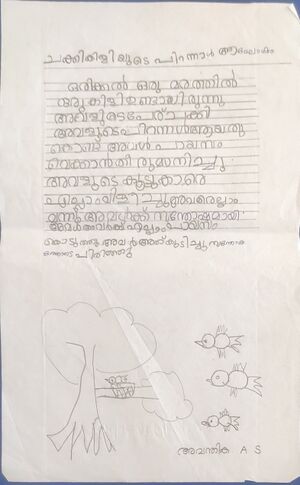 ചക്കികിളിയുടെ പിറന്നാൾ ആഘോഷം
ഒരിക്കൽ ഒരു മരത്തിൽ
ഒരു കിളി ഉണ്ടായിരുന്നു
അവളുടെ പേര് ചക്കി
അവളുടെ പിറന്നാൾ ആയതു
കൊണ്ട് അവൾ പായസം
വെക്കാൻ തീരുമാനിച്ചു
അവളുടെ കൂട്ടുകാരെ
എല്ലാം വിളിച്ചു അവരെല്ലാം
വന്നു അവൾക്ക് സന്തോഷമായി
അവൾ അവർക്ക് എല്ലാം പായസം
കൊടുത്തു അവർ അത് കുടിച്ചു സന്തോഷ
ത്തോടെ പിരിഞ്ഞു
അവന്തിക A S